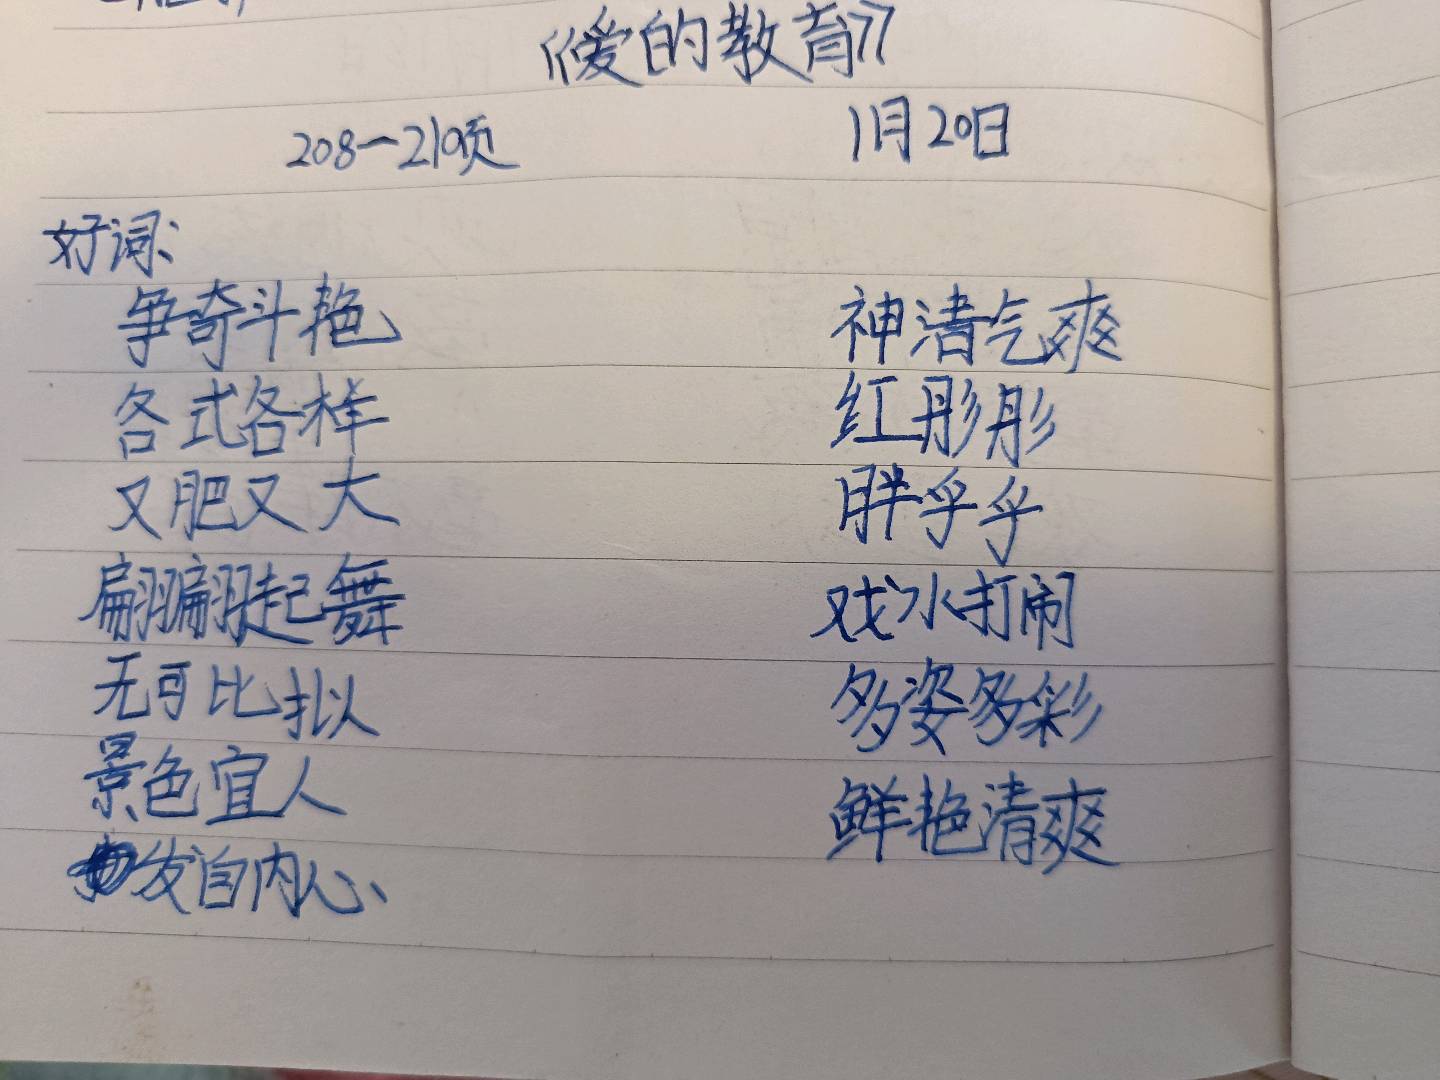 《爱的教育》
208—210页 1月20日
好词:
争奇斗艳 神清气爽
各式各样 红彤彤
又肥又大 胖乎乎
翩翩起舞 戏水打闹
无可比拟 多姿多彩
景色宜人 鲜艳清爽
发自内心